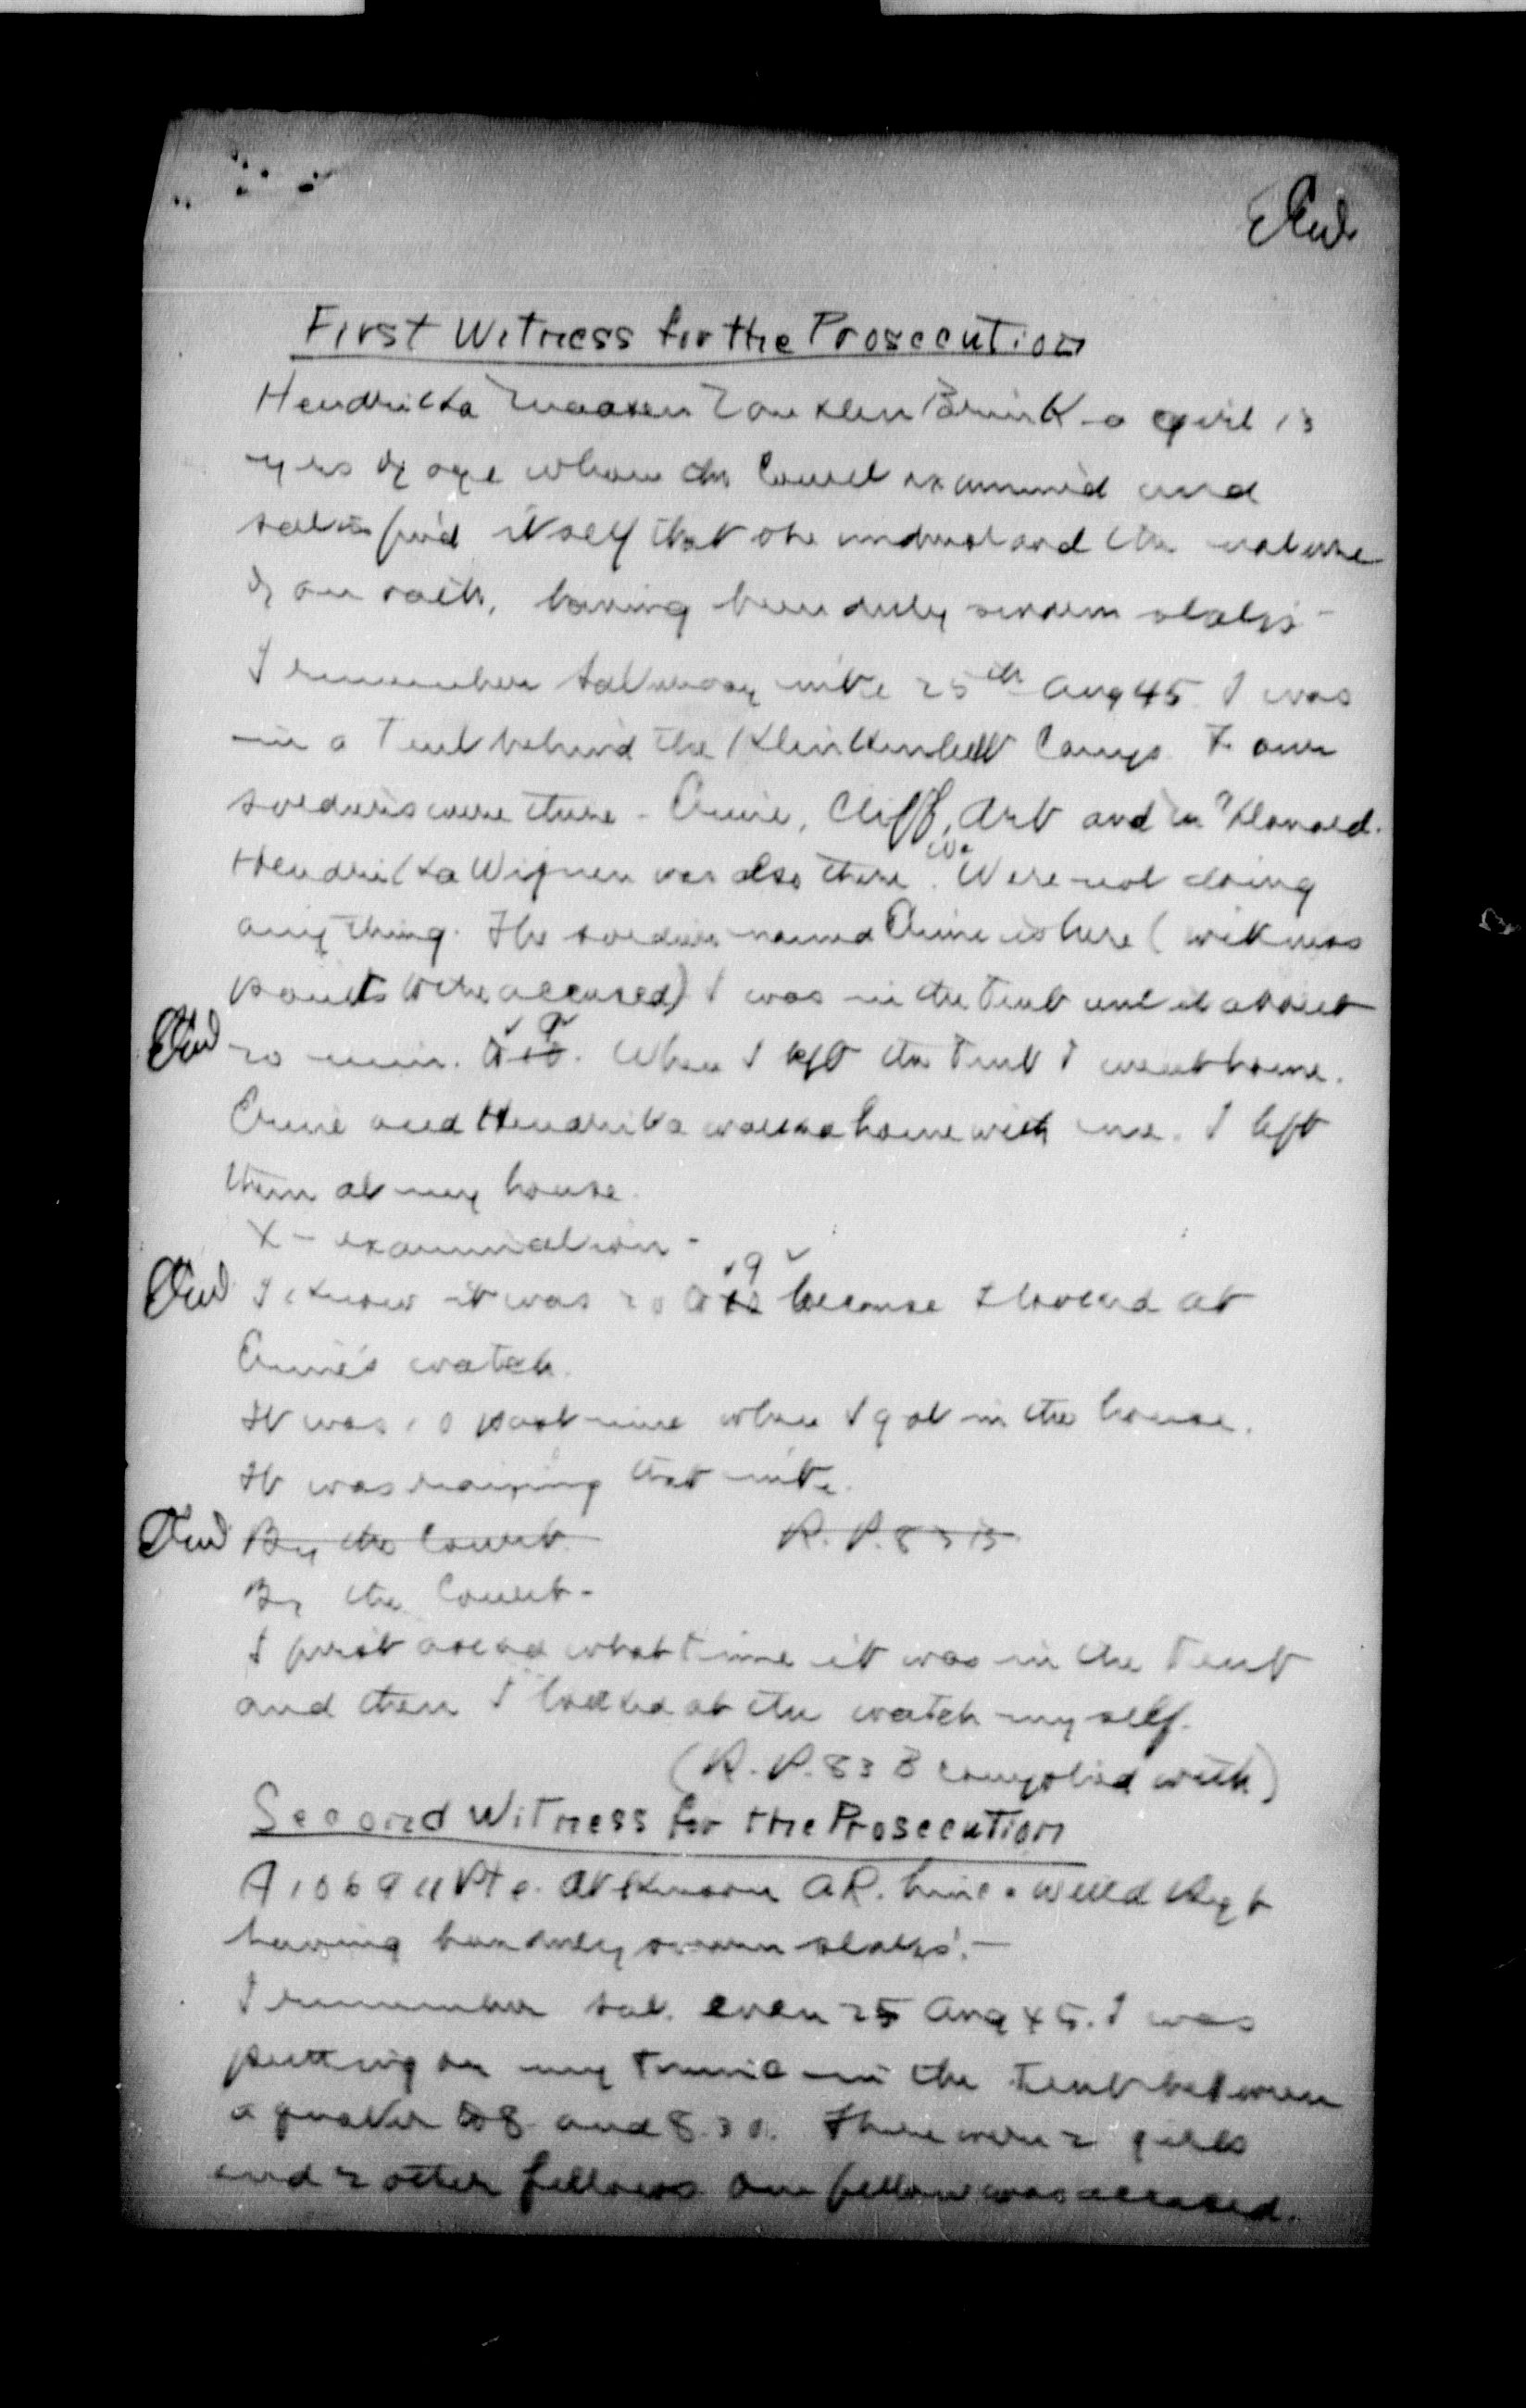 First Witness for the Prosecution
Hendricka Brink - a girl 13
yrs of age whom the Court examined and
satisfied itself that she understand the nature
of an oath, having been duly sworn states -
I remember Saturday nite 25th Aug 45. I was
in a Tent behind the Camp. Four
soldiers were there - Ernie, Cliff, Art and a Howard.
Hendricka Wignen was also there. We Were not doing
anything. The soldier named Ernie is here (witness
points to the accused) I was in the Tent until about
20 min. to 10 9. When I left the Tent I went home.
Ernie and Hendrika walked home with me. I left
them at my house.
X - examination -
I know it was 20 to 10 9 because I looked at
Ernie's watch.
It was 10 past nine when I got in the house.
It was raining that nite.
By the Court. R.P. 83 B
By the Court -
I first asked what time it was in the Tent
and then I looked at the watch myself.
(R.P. 83 B complied with)
Second Witness for the Prosecution
Pte. Atkinson A.R. Linc & Welld Regt
having been duly sworn states: -
I remember Sat. even 25 Aug 45. I was
putting on my Tunic in the Tent between
a quarter to 8 and 8.30. There were 2 girls
and 2 other fellows One fellow was accused.